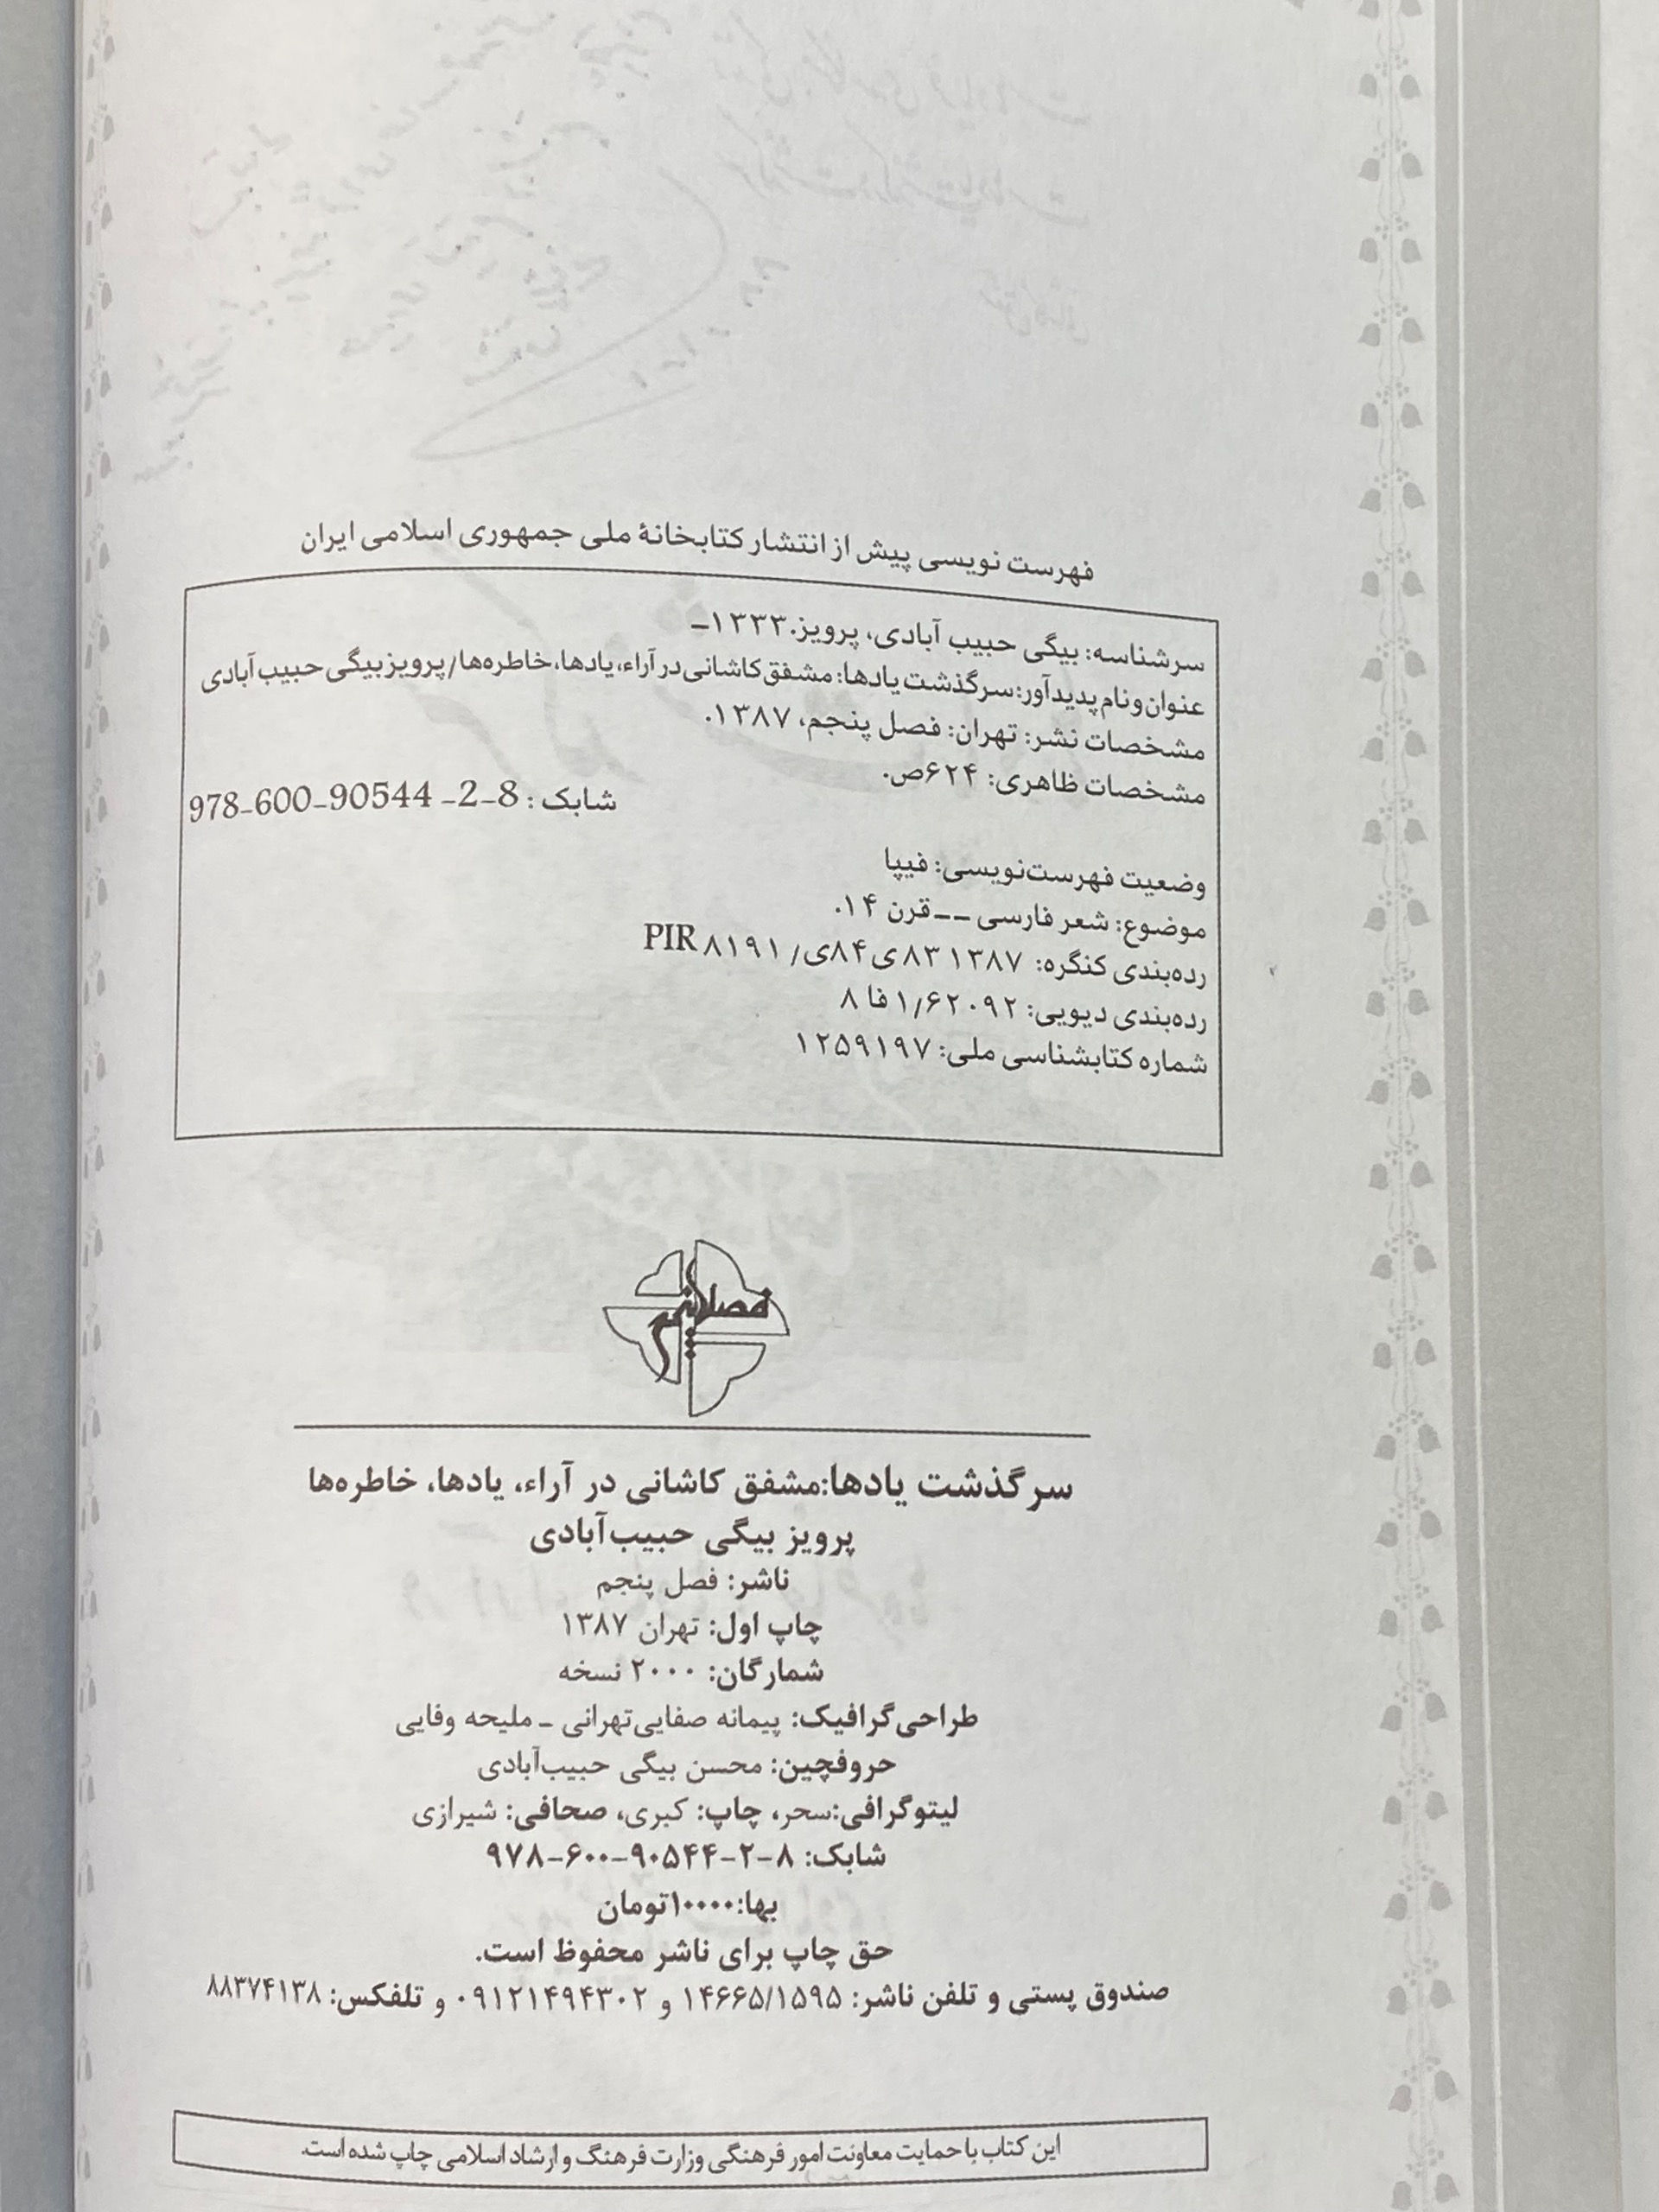 فهرست نویسی پیش از انتشار کتابخانهٔ ملی جمهوری اسلامی ایران
سرشناسه: بیگی حبیب آبادی، پرویز.۱۳۳۳ـ
عنوان‌و‌نام‌پدیدآور:سرگذشت یادها: مشفق کاشانی در آراء، یادها، خاطره‌ها/پرویز بیگی حبیب آبادی
مشخصات نشر: تهران: فصل پنجم، ۱۳۸۷.
مشخصات ظاهری: ۶۲۴ص.
شابک : 8-2- 978-600-90544
وضعیت فهرست‌نویسی: فیپا
موضوع: شعر فارسی -- قرن ۱۴.
رده‌بندی کنگره: ۱۳۸۷ ۸۳ی۸۴ی/ PIR ۸۱۹۱
رده‌بندی دیویی: ۱/۶۲۰۹۲ فا ۸
شماره کتابشناسی ملی: ۱۲۵۹۱۹۷
فصل پنجم
سرگذشت یادها:مشفق کاشانی در آراء، یادها، خاطره‌ها
پرویز بیگی حبیب‌آبادی
ناشر: فصل پنجم
چاپ اول: تهران ۱۳۸۷
شمارگان: ۲۰۰۰ نسخه
طراحی‌گرافیک: پیمانه صفایی‌تهرانی ـ ملیحه وفایی
حروفچین: محسن بیگی حبیب‌آبادی
لیتوگرافی:سحر، چاپ: کبری، صحافی: شیرازی
شابک: ۸-۲-۹۰۵۴۴-۶۰۰-۹۷۸
بها:۱۰۰۰۰تومان
حق چاپ برای ناشر محفوظ است.
صندوق پستی و تلفن ناشر: ۱۴۶۶۵/۱۵۹۵ و ۰۹۱۲۱۴۹۴۳۰۲ و تلفکس: ۸۸۳۷۴۱۳۸
این کتاب با حمایت معاونت امور فرهنگی وزارت فرهنگ و ارشاد اسلامی چاپ شده است.